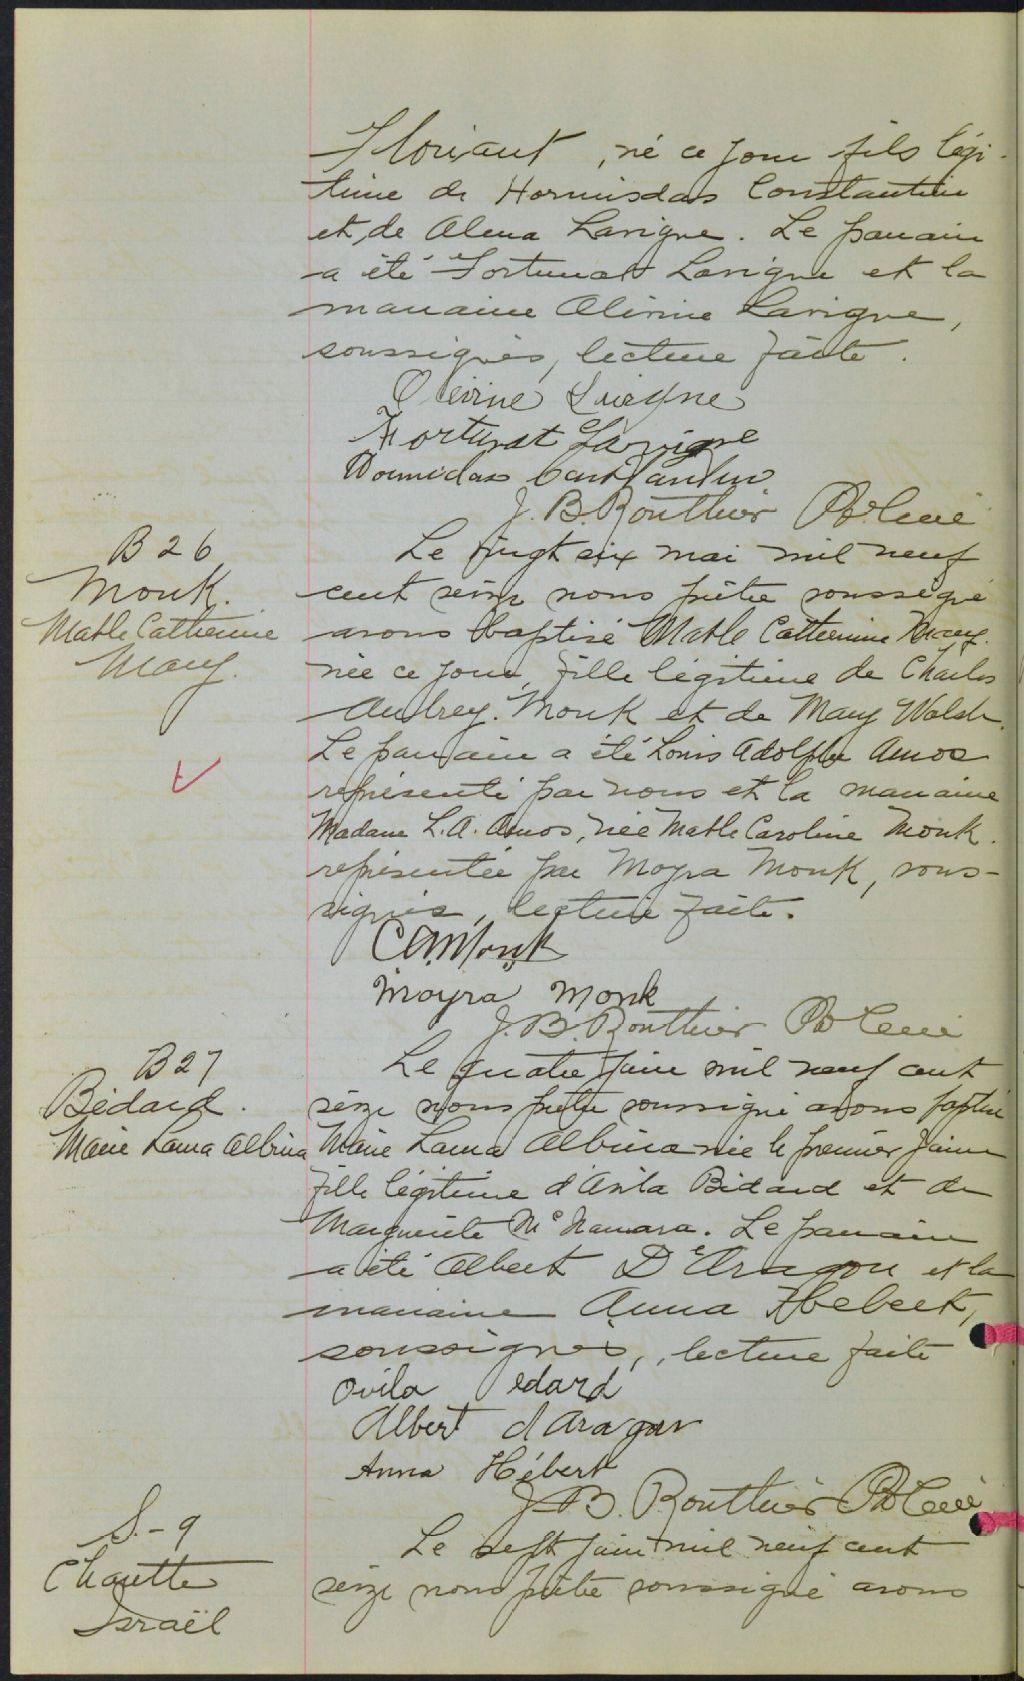 Floriant, né ce jour fils légi-
time de Hormisdas Constantin
et de Alena Lavigne. Le parrain
a été Fortunat Lavigne et la
marraine Olivine Lavigne,
soussignés, lecture faite.
Olivine Lavigne
Fortunat Lavigne
Hormidas Constantin
J. B. Routhier Ptre Curé
B 26
Monk.
Mable Catherine
Mary.
Le vingt six mai mil neuf
cent seize nous prêtre soussigné
avons baptisé Mable Catherine Mary.
née ce jour, fille légitime de Charles
Aubrey. Monk et de Mary Walsh.
Le parrain a été Louis Adolphe Amos
représenté par nous et la marraine
Madame L. A. Amos, née Mable Caroline Monk.
représentée par Moyra Monk, sous-
signés, lecture faite.
C A Monk
Moyra Monk
J. B. Routhier Ptre Curé
B 27
Bédard.
Marie Laura Albina
Le quatre juin mil neuf cent
seize nous prêtre soussigné avons baptisé
Marie Laura Albina née le premier juin
fille légitime d'Avila Bédard et de
Marguerite McNamara. Le parrain
a été Albert D'Aragon et la
marraine Anna Hebert,
soussignés, lecture faite
Ovila Bedard
Albert d'Aragon
Anna Hébert
J. B. Routhier Ptre Curé
S.-9
Chouette
Israël
Le sept juin mil neuf cent
seize nous prêtre soussigné avons